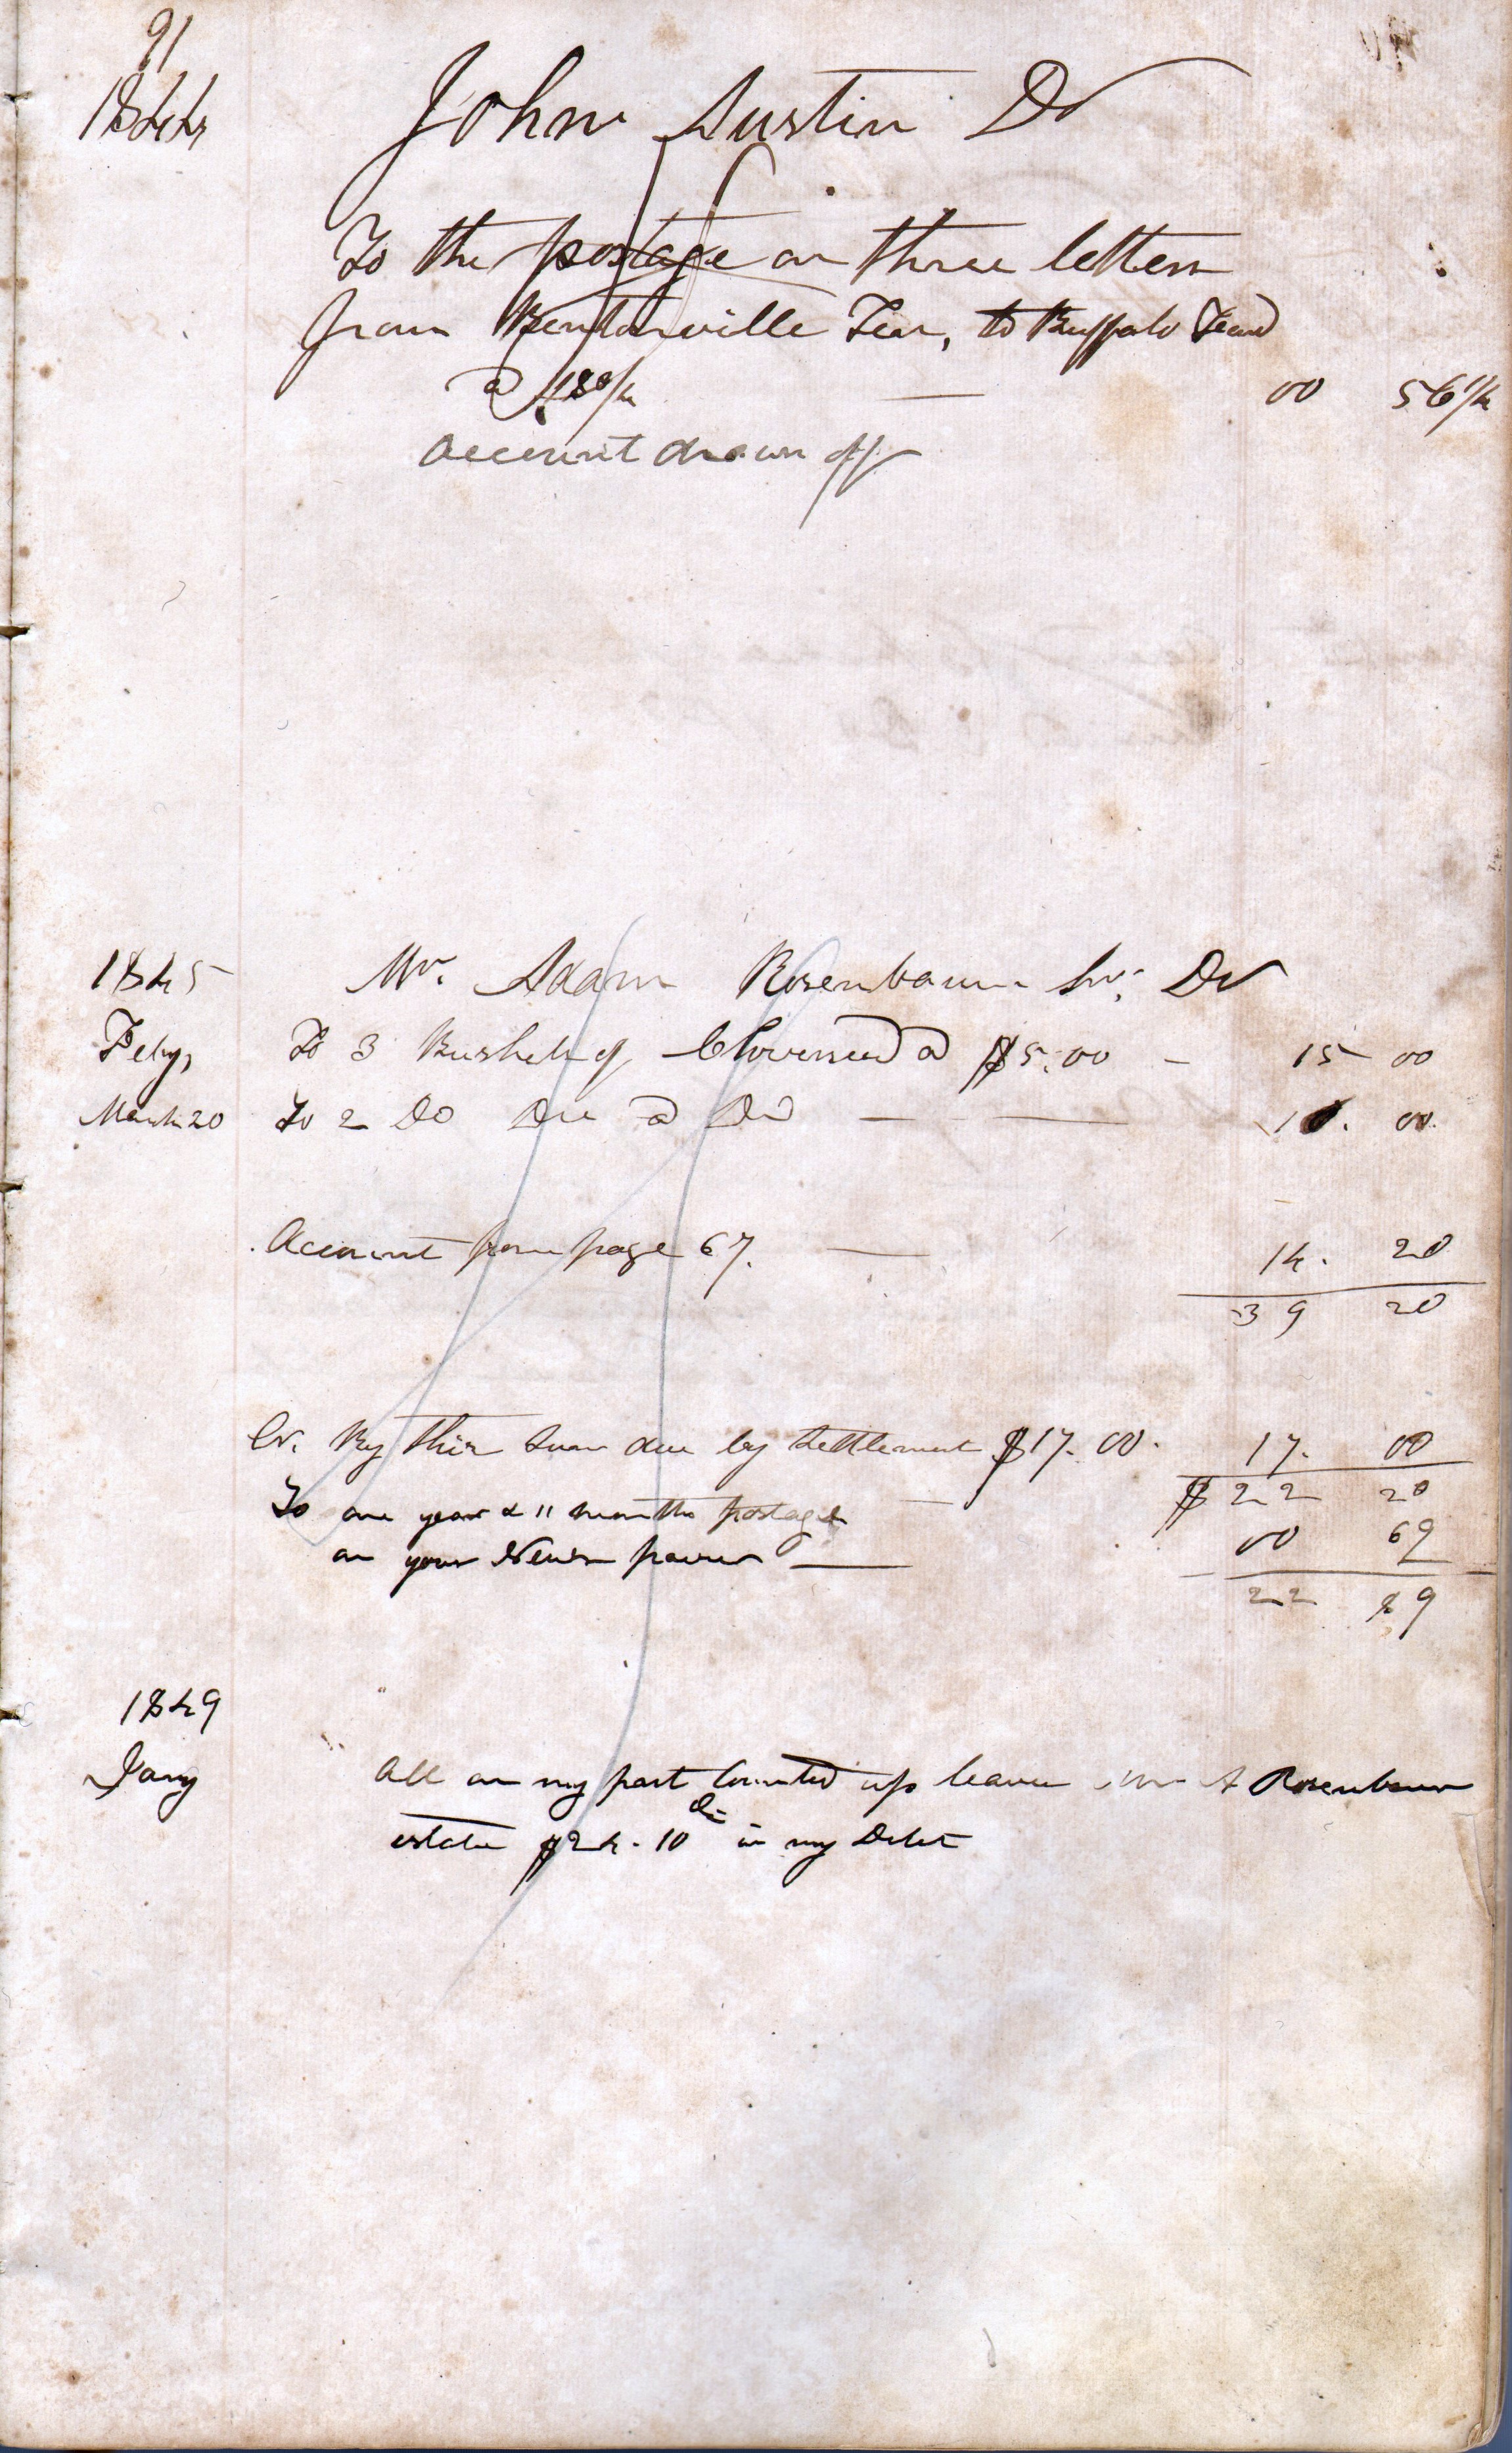 91
1844 John Austin Dr
To the postage on three letters
from Bentonville Ten, to Buffalo Ford
@ 18 3/4 — 00 56 1/4
Account drawn off
1845 Mr. Adam Rosenbaum Sr. Dr
Feby, To 3 Bushels of Cloverseed @ $5.00 – 15 00
March 20 To 2 Do Do @ Do — — 10. 00.
Account from page 67. — 14. 20
39 20
Cr. By this sum due by Settlement $17. 00. 17. 00
— $ 22 20
To one year & 11 months postage
on your News paper — 00 69
22 89
1849
Jany All on my part Counted up leaves A Rosenbaum
estate $24.10 in my Debt